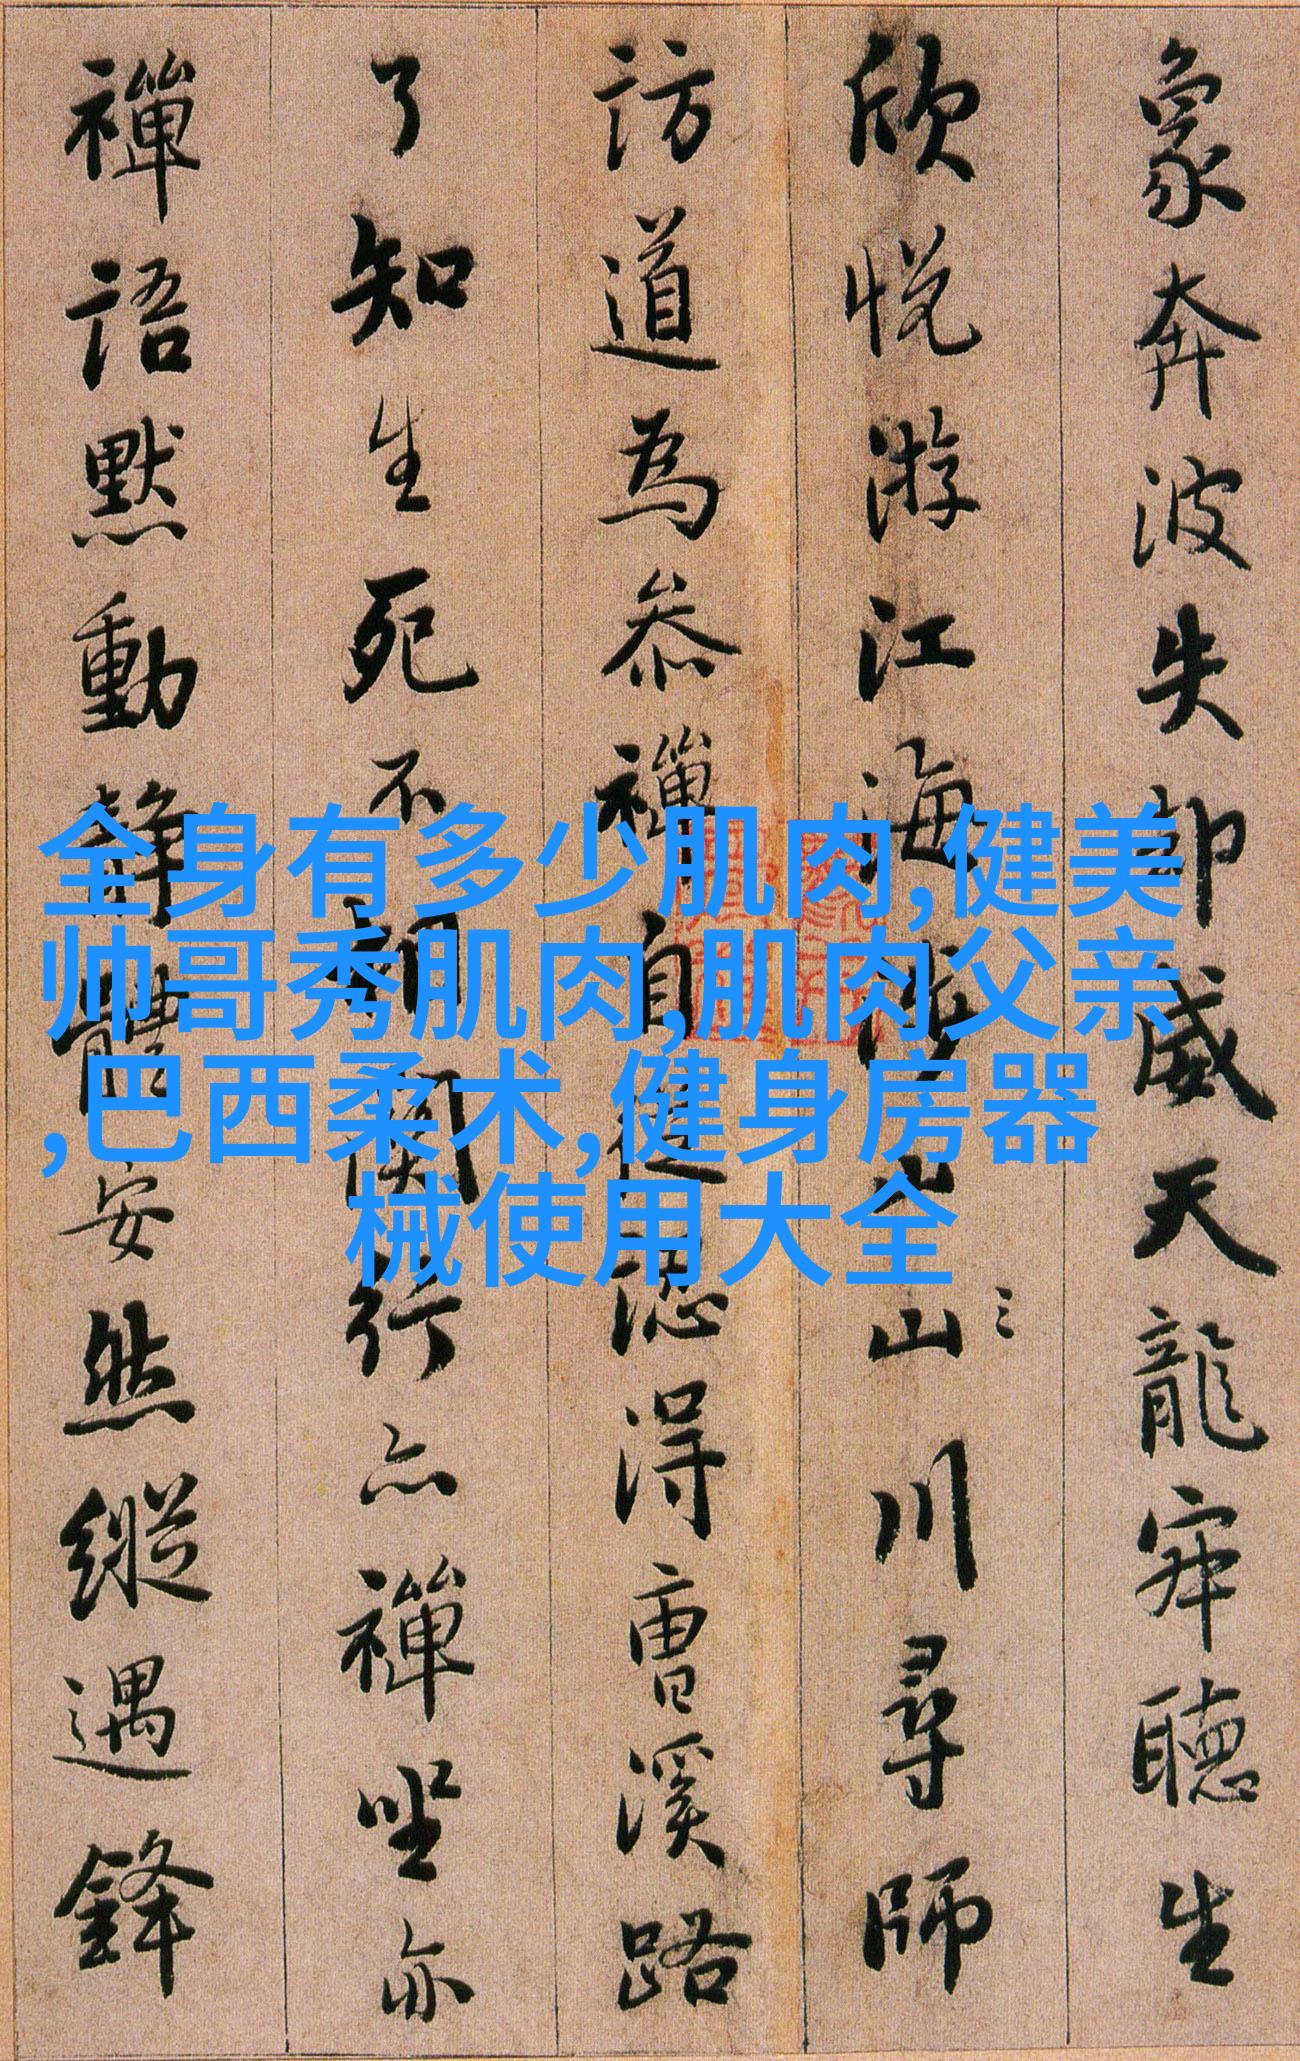 象奔波失却威天龍寂聽生
欣悅游江海山川尋師
訪道為叅禪自從認得曹溪路
了知生死不相關行亦禪坐亦
禪語默動静體安然縱遇鋒
全身有多少肌肉,健美
帅哥秀肌肉,肌肉父亲
,巴西柔术,健身房器
械使用大全